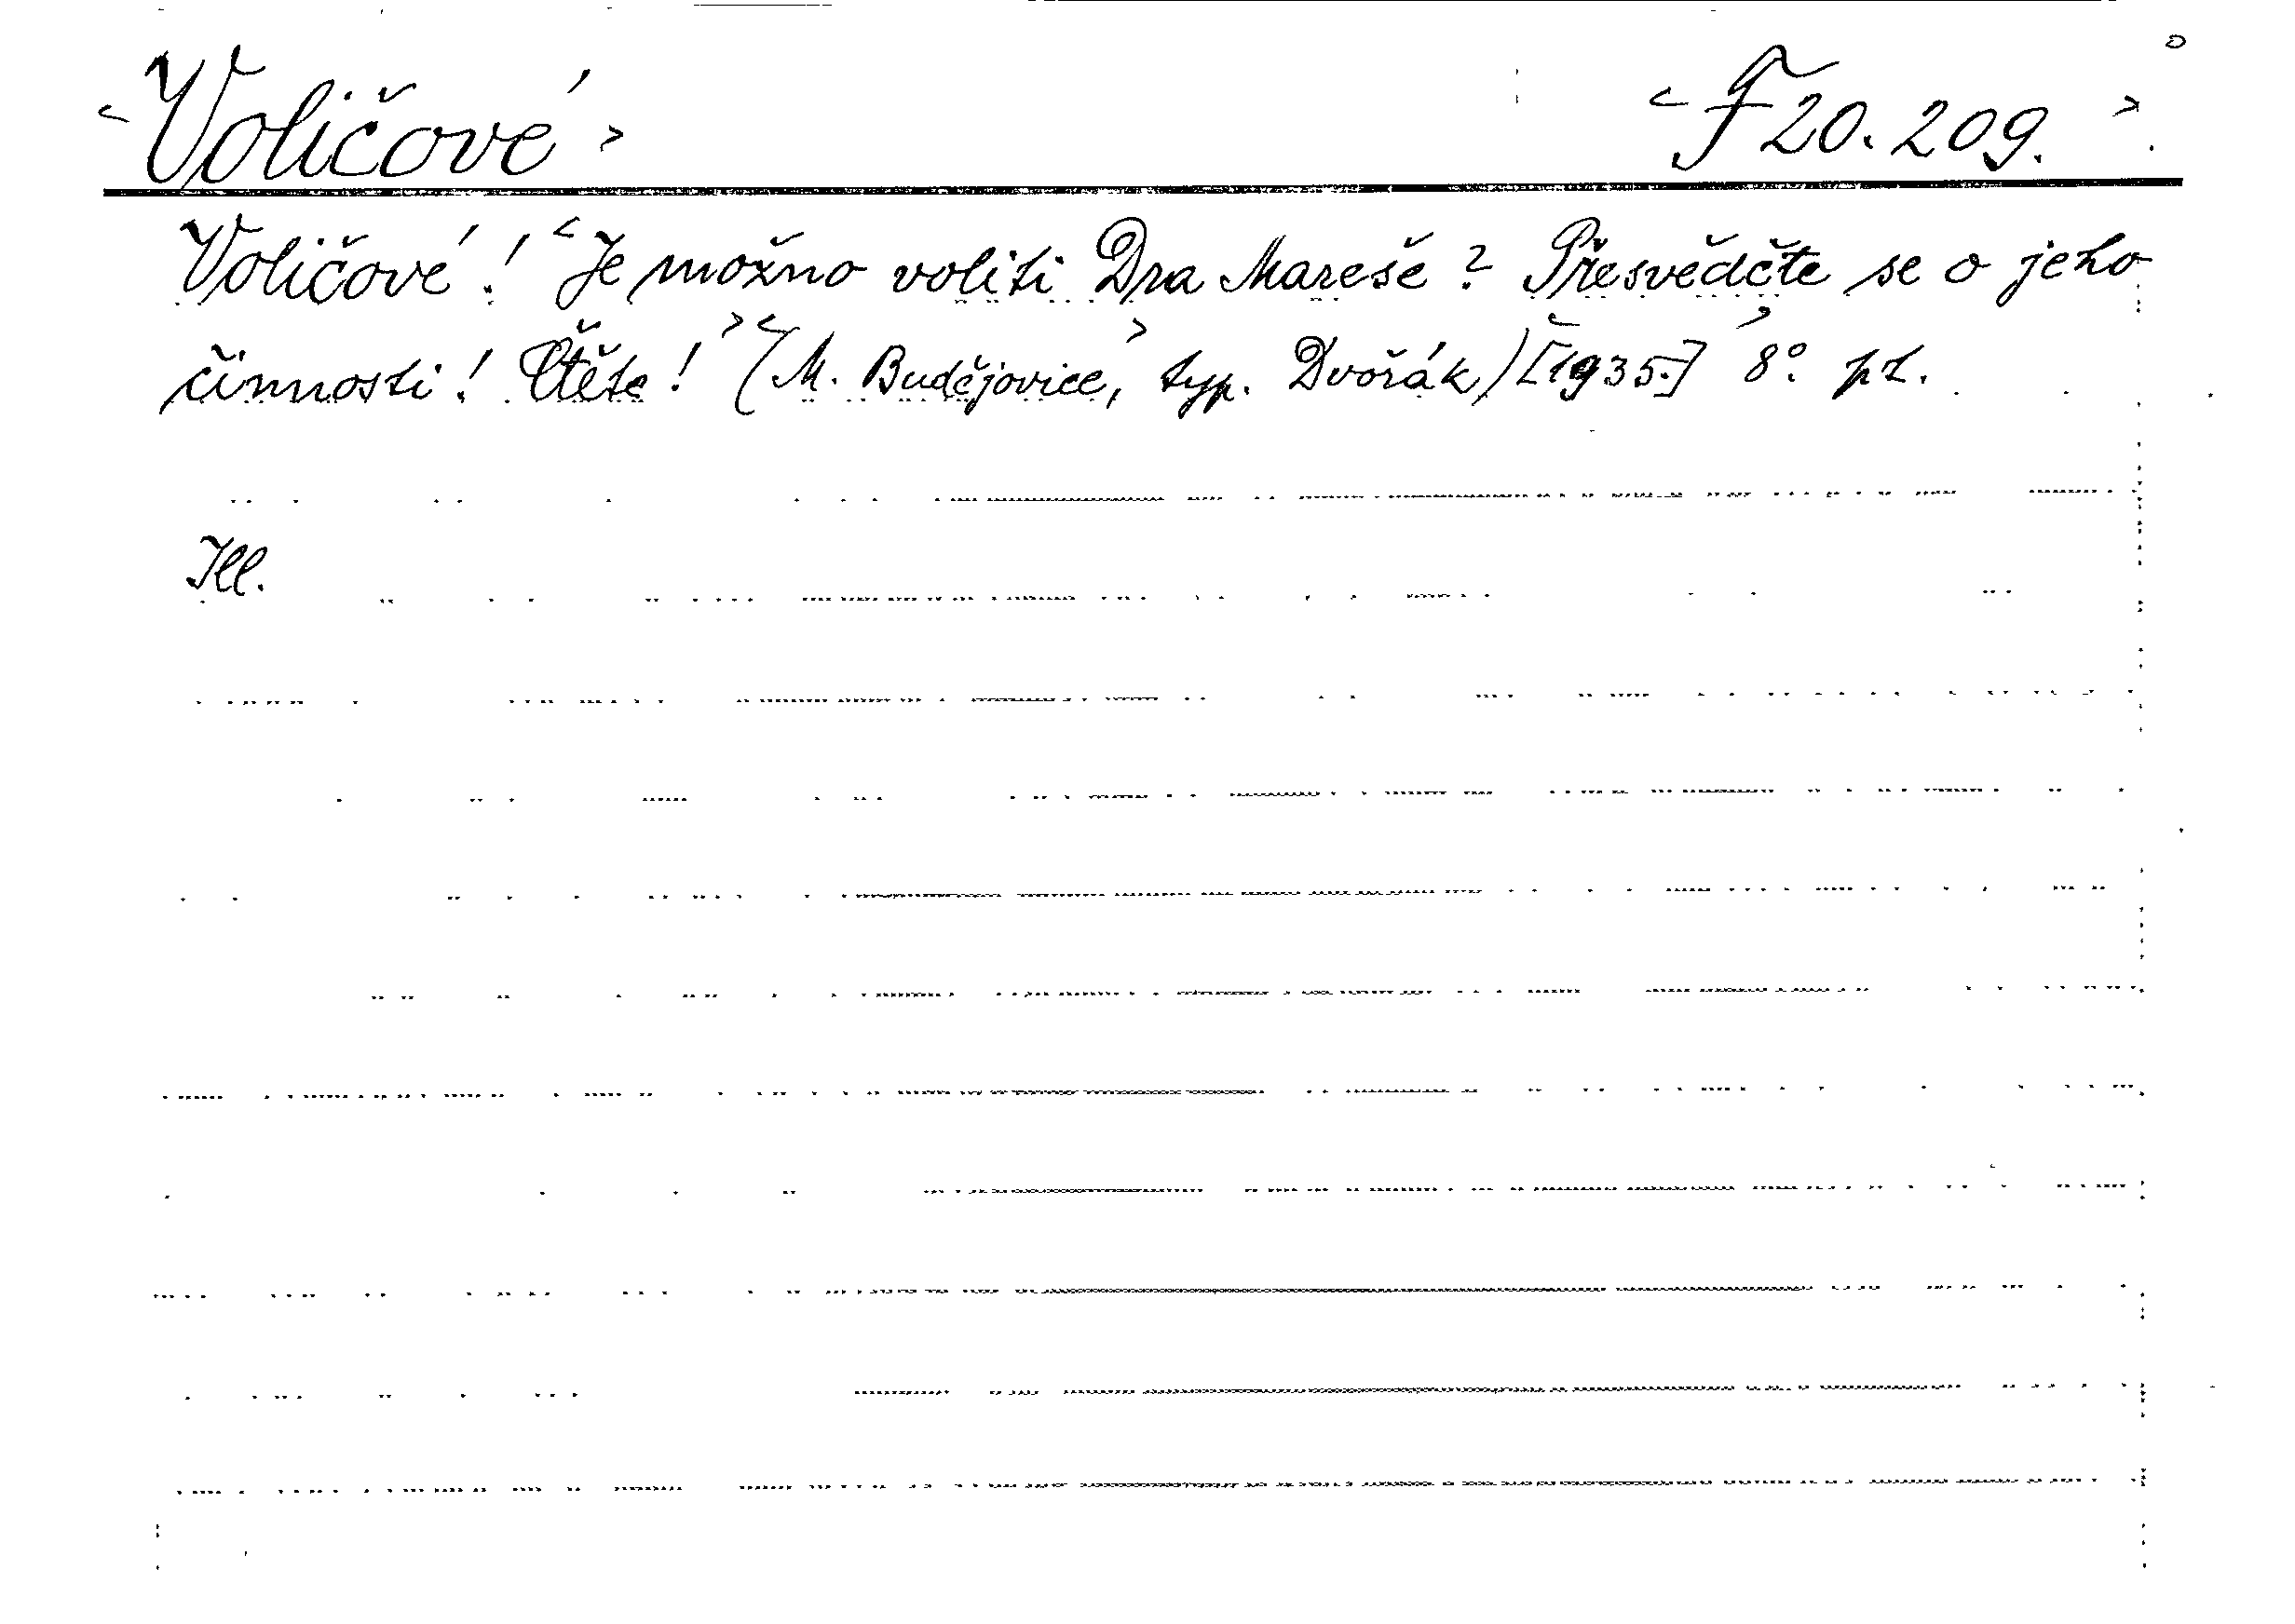 <Voličové> <F 20.209.>
Voličové! <Je možno voliti Dra Mareše? Přesvědčte se o jeho
činnosti! Čtěte!> <(M. Budějovice,> typ. Dvořák) <[1935.]> 8° pl.
Ill.